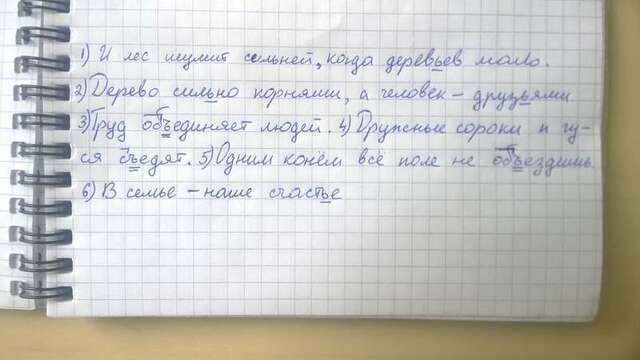 1) И лес шумит сильней, когда деревьев много.
2) Дерево сильно корнями, а человек – друзьями
3) Труд объединяет людей. 4) Дружные сороки и гу-
ся съедят. 5) Одним конём всё поле не объездишь
6) В семье – наше счастье